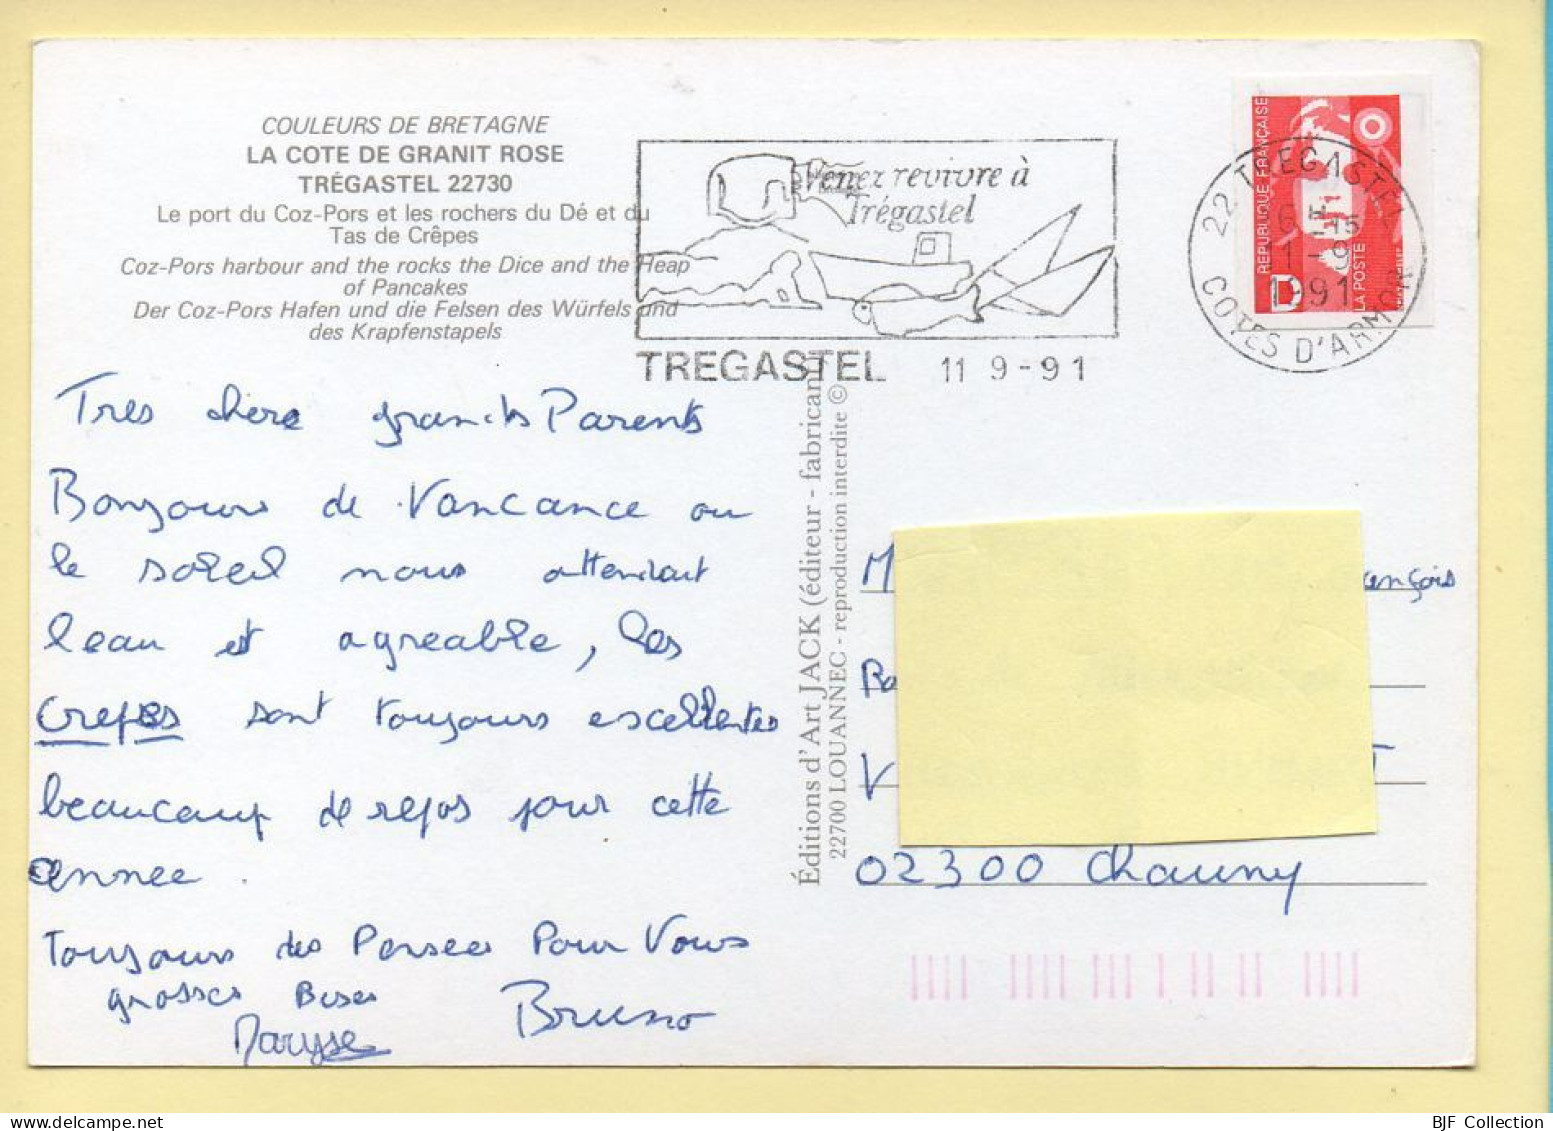 COULEURS DE BRETAGNE
LA COTE DE GRANIT ROSE
TRÉGASTEL 22730
Le port du Coz-Pors et les rochers du Dé et du
Tas de Crêpes
Coz-Pors harbour and the rocks the Dice and the Heap
of Pancakes
Der Coz-Pors Hafen und die Felsen des Würfels und
des Krapfenstapels
Venez revivre à
Trégastel
TREGASTEL 11 9-91
REPUBLIQUE FRANÇAISE
LA POSTE
22 TREGASTEL
6H15
11-9
1991
COTES D'ARMOR
Tres chere grands Parents
Bonjours de Vancance ou
le soleil nous attendait
l'eau et agreable, les
crepes sont toujours escellentes
beaucoup de repos pour cette
annee.
Toujours des Persees Pour Vous
grosses Bises
Maryse
Bruno
Éditions d'Art JACK (éditeur - fabricant)
22700 LOUANNEC - reproduction interdite ©
M
ançois
V T
02300 Chauny
BJF Collection